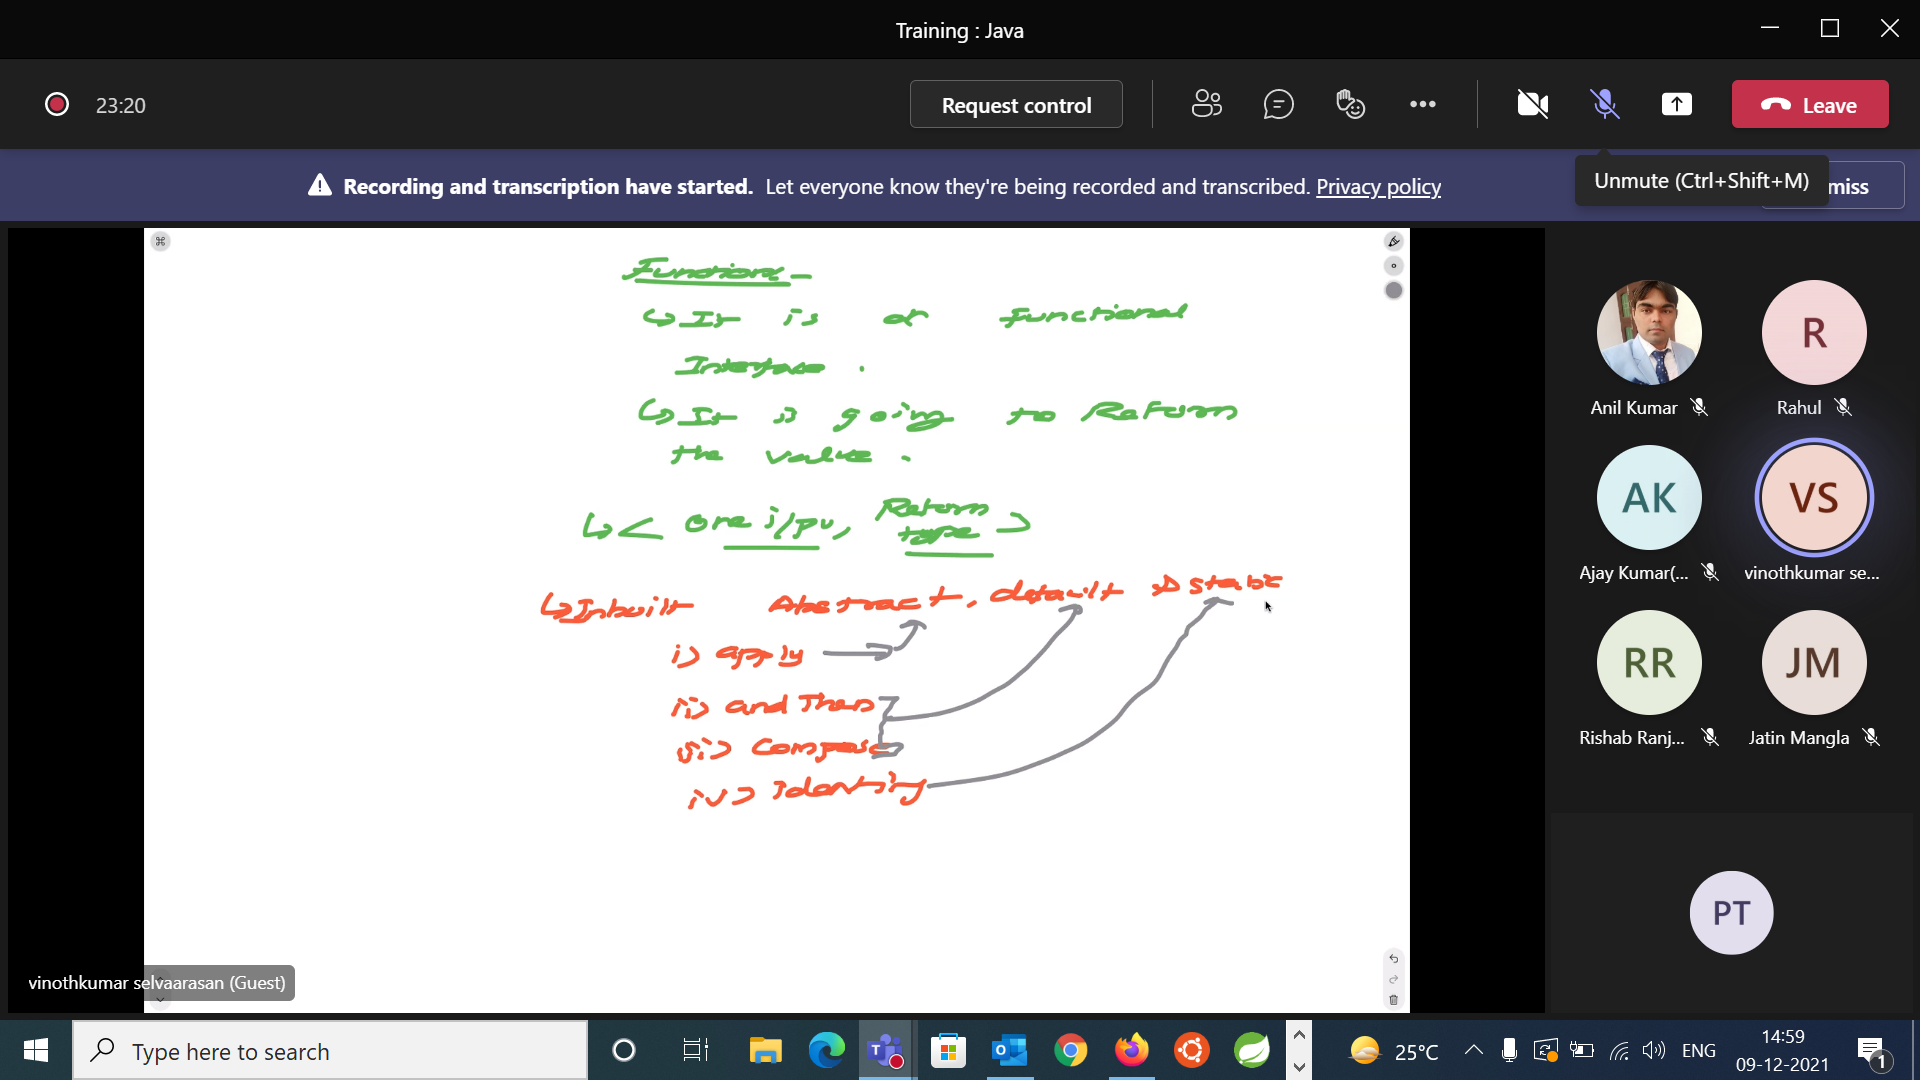 Training : Java
23:20
Request control
Leave
Recording and transcription have started. Let everyone know they're being recorded and transcribed. Privacy policy
miss
Unmute (Ctrl+Shift+M)
Functions -
↳ It is a functional
Interface .
↳ It is going to Return
the value .
↳ < one i/pu, Return
type >
↳ Inbuilt Abstract, default => static
i) apply
ii) and Then
iii) Compose
iv) Identity
vinothkumar selvaarasan (Guest)
R
Anil Kumar
Rahul
AK
VS
Ajay Kumar(...
vinothkumar se...
RR
JM
Rishab Ranj...
Jatin Mangla
PT
Type here to search
25°C
ENG
14:59
09-12-2021
1